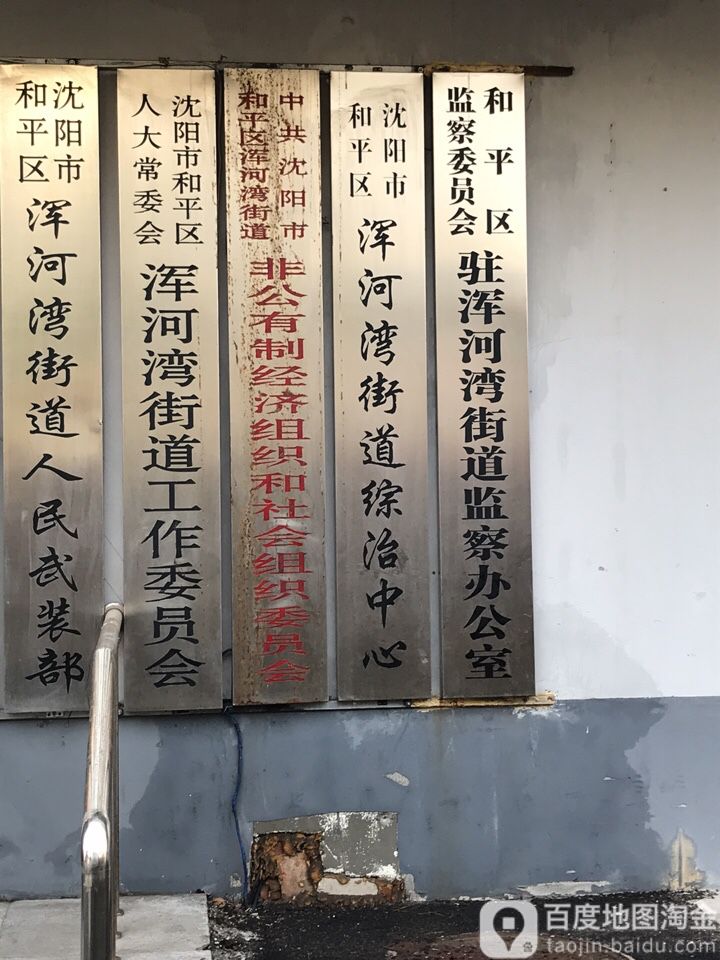 沈阳市
和平区
浑河湾街道人民武装部
沈阳市和平区
人大常委会
浑河湾街道工作委员会
中共沈阳市
和平区浑河湾街道
非公有制经济组织和社会组织委员会
沈阳市
和平区
浑河湾街道综治中心
和平区
监察委员会
驻浑河湾街道监察办公室
百度地图淘金
taojin-baidu.com